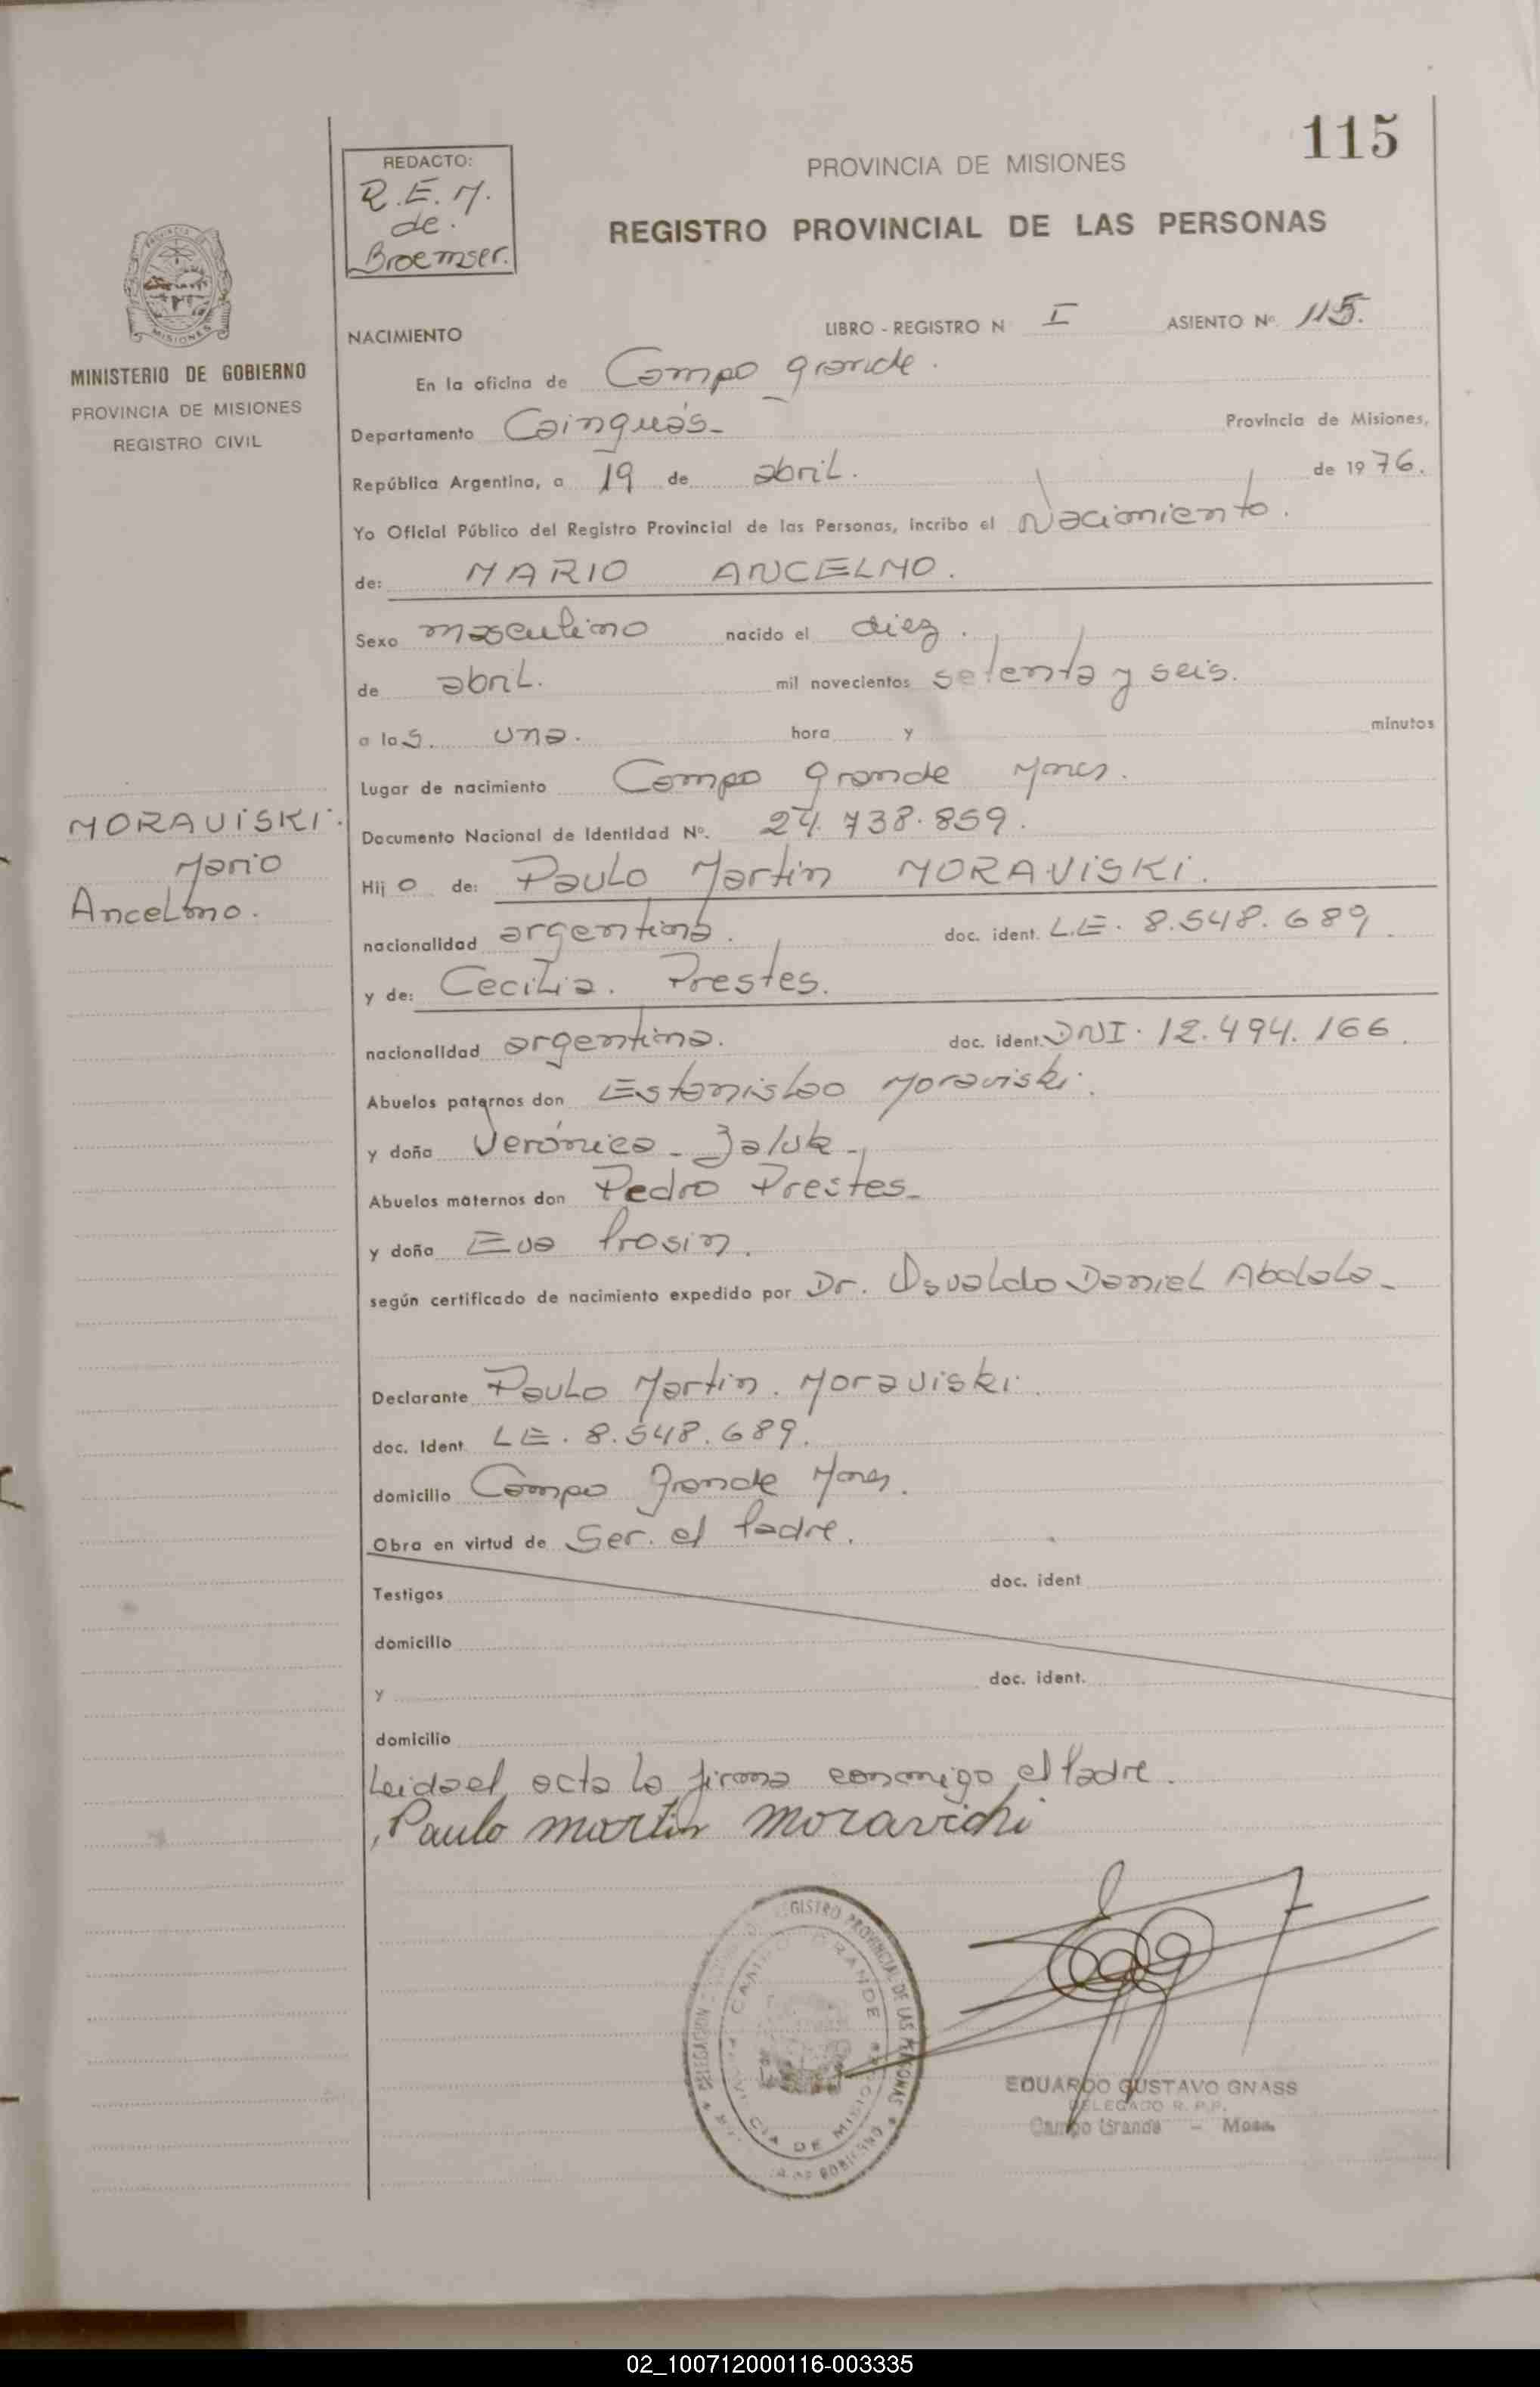 115
REDACTO:
R.E.M.
de.
Broemser.
PROVINCIA DE MISIONES
REGISTRO PROVINCIAL DE LAS PERSONAS
MISIONES
MINISTERIO DE GOBIERNO
PROVINCIA DE MISIONES
REGISTRO CIVIL
NACIMIENTO LIBRO - REGISTRO N I ASIENTO Nº 115.
En la oficina de Campo grande.
Departamento Cainguás- Provincia de Misiones,
República Argentina, a 19 de abril. de 1976.
Yo Oficial Público del Registro Provincial de las Personas, incribo el Nacimiento.
de: MARIO ANCELMO.
Sexo masculino nacido el diez.
de abril. mil novecientos setenta y seis.
a las. una. hora y minutos
Lugar de nacimiento Campo grande Mnes.
MORAVISKI.
Mario
Ancelmo.
Documento Nacional de Identidad Nº. 24.738.859.
Hijo de: Paulo Martin MORAVISKI.
nacionalidad argentina. doc. ident. L.E. 8.548.689.
y de: Cecilia. Prestes.
nacionalidad argentina. doc. ident. DNI. 12.494.166.
Abuelos paternos don Estanislao Moraviski.
y doña Verónica - Zaluk -
Abuelos maternos don Pedro Prestes-
y doña Eva Prosin.
según certificado de nacimiento expedido por Dr. Osvaldo Daniel Abdala-
Declarante Paulo Martin. Moraviski.
doc. Ident LE. 8.548.689.
domicilio Campo grande Mnes.
Obra en virtud de Ser. el Padre.
Testigos doc. ident
domicilio
y doc. ident.
domicilio
Leida el acta la firma conmigo el Padre.
Paulo martin moravichi
DELEGACION REGISTRO PROVINCIAL DE LAS PERSONAS
CAMPO GRANDE
PROVINCIA DE MISIONES
DE GOBIERNO
EDUARDO GUSTAVO GNASS
DELEGADO R. P. P.
Campo Grande - Mnes.
02_100712000116-003335